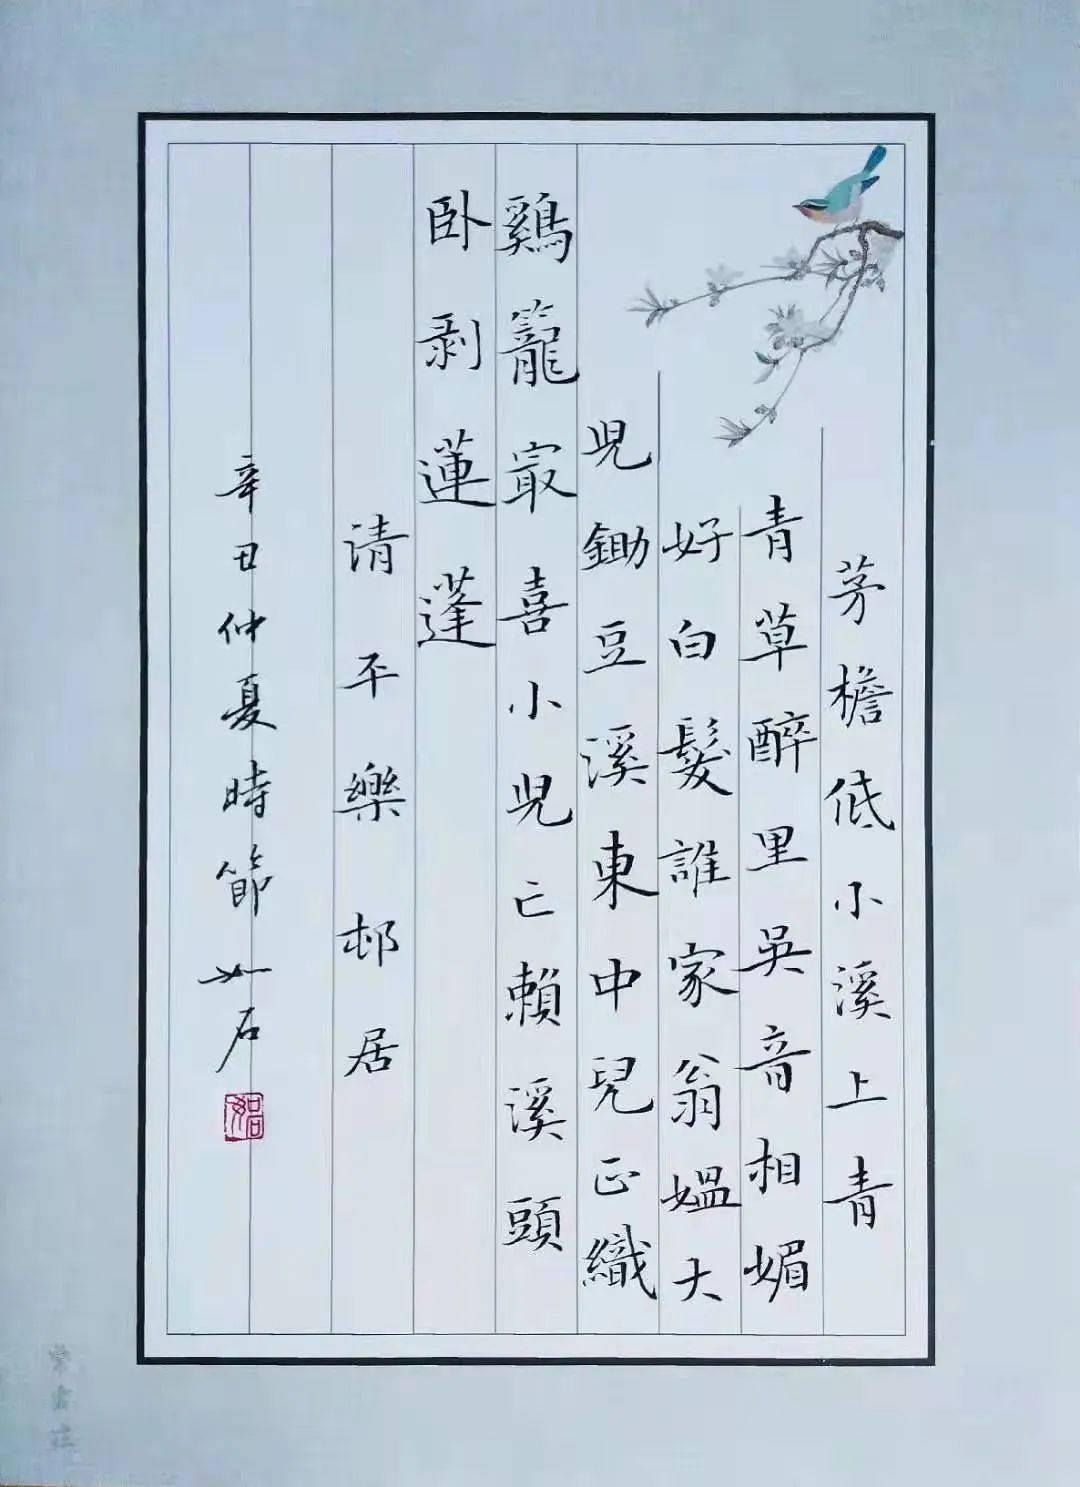 茅檐低小溪上青
青草醉里吳音相媚
好白髮誰家翁媼大
兒鋤豆溪東中兒正織
鷄籠㝡喜小兒亡賴溪頭
卧剥蓮蓬
清平樂邨居
辛丑仲夏時節如石